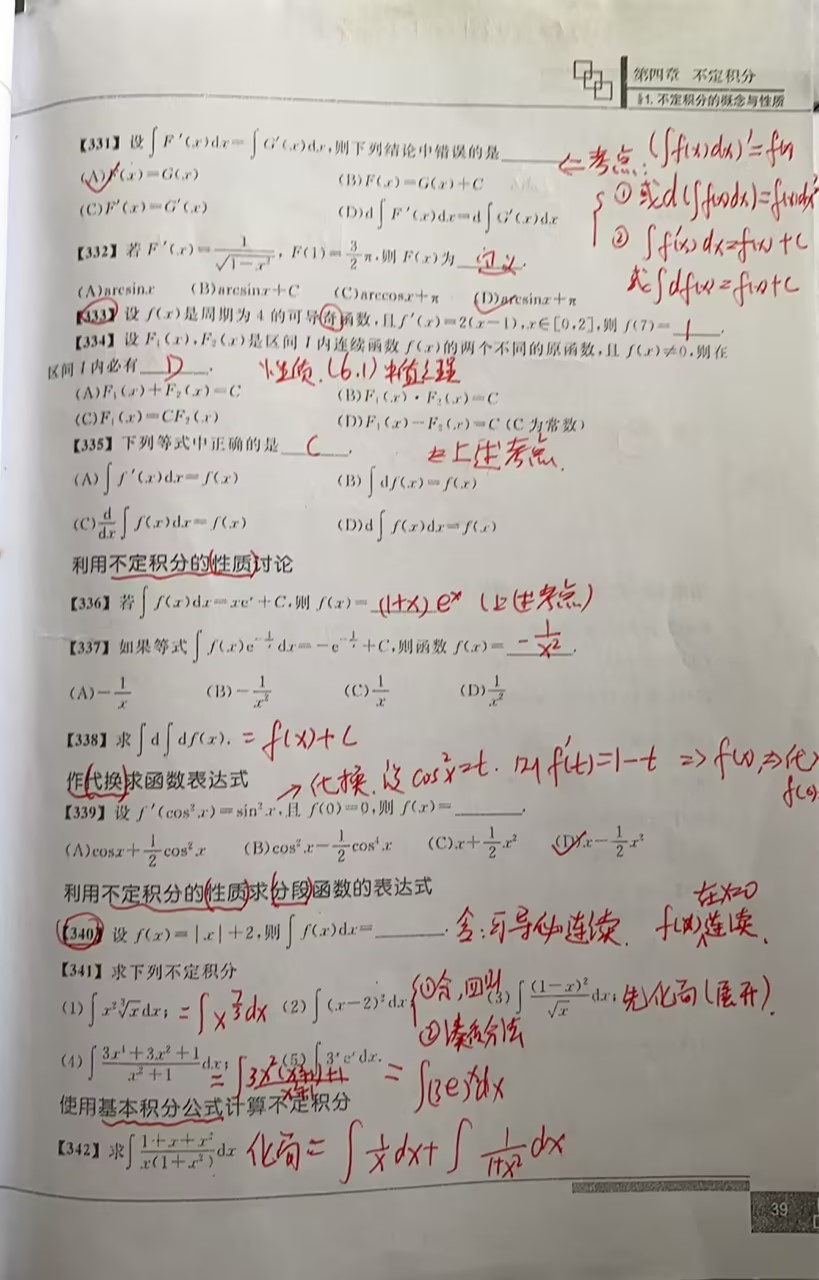 第四章 不定积分
§1. 不定积分的概念与性质
【331】设∫F′(x)dx=∫G′(x)dx,则下列结论中错误的是______. ←考点: (∫f(x)dx)′=f(x)
(A)F(x)=G(x) (B)F(x)=G(x)+C ①或d(∫f(x)dx)=f(x)dx
(C)F′(x)=G′(x) (D)d∫F′(x)dx=d∫G′(x)dx ②∫f′(x)dx=f(x)+C
【332】若F′(x)=1/√(1-x²), F(1)=3/2π,则F(x)为 定义. 或∫df(x)=f(x)+C
(A)arcsinx (B)arcsinx+C (C)arccosx+π (D)arcsinx+π
【333】设f(x)是周期为4的可导奇函数,且f′(x)=2(x-1),x∈[0,2],则f(7)= 1.
【334】设F₁(x),F₂(x)是区间I内连续函数f(x)的两个不同的原函数,且f(x)≠0,则在
区间I内必有 D. 性质.(6.1)中值定理
(A)F₁(x)+F₂(x)=C (B)F₁(x)·F₂(x)=C
(C)F₁(x)=CF₂(x) (D)F₁(x)-F₂(x)=C(C为常数)
【335】下列等式中正确的是 C. 上述考点.
(A)∫f′(x)dx=f(x) (B)∫df(x)=f(x)
(C)d/dx∫f(x)dx=f(x) (D)d∫f(x)dx=f(x)
利用不定积分的性质讨论
【336】若∫f(x)dx=xeˣ+C,则f(x)= (1+x)eˣ (上述考点)
【337】如果等式∫f(x)e^(-1/x)dx=-e^(-1/x)+C,则函数f(x)= -1/x².
(A)-1/x (B)-1/x² (C)1/x (D)1/x²
【338】求∫d∫df(x). =f(x)+C
作代换求函数表达式 →代换.设cos²x=t. 则f′(t)=1-t ⇒f(x),⇒代
f(0)
【339】设f′(cos²x)=sin²x,且f(0)=0,则f(x)=______.
(A)cosx+1/2cos²x (B)cos²x-1/2cos⁴x (C)x+1/2x² (D)x-1/2x²
利用不定积分的性质求分段函数的表达式
在x=0
【340】设f(x)=|x|+2,则∫f(x)dx=______. 含:可导必连续. f(x)连续.
【341】求下列不定积分
(1)∫x²∛xdx; =∫x^(7/3)dx (2)∫(x-2)²dx; (3)∫(1-x)²/√x dx; 先化简(展开).
②凑微分法
(4)∫(3x⁴+3x²+1)/(x²+1)dx; =∫(3x²(x²+1)+1)/(x²+1) (5)∫3ˣeˣdx. =∫(3e)ˣdx
使用基本积分公式计算不定积分
【342】求∫(1+x+x²)/(x(1+x²))dx 化简=∫1/x dx+∫1/(1+x²) dx
39